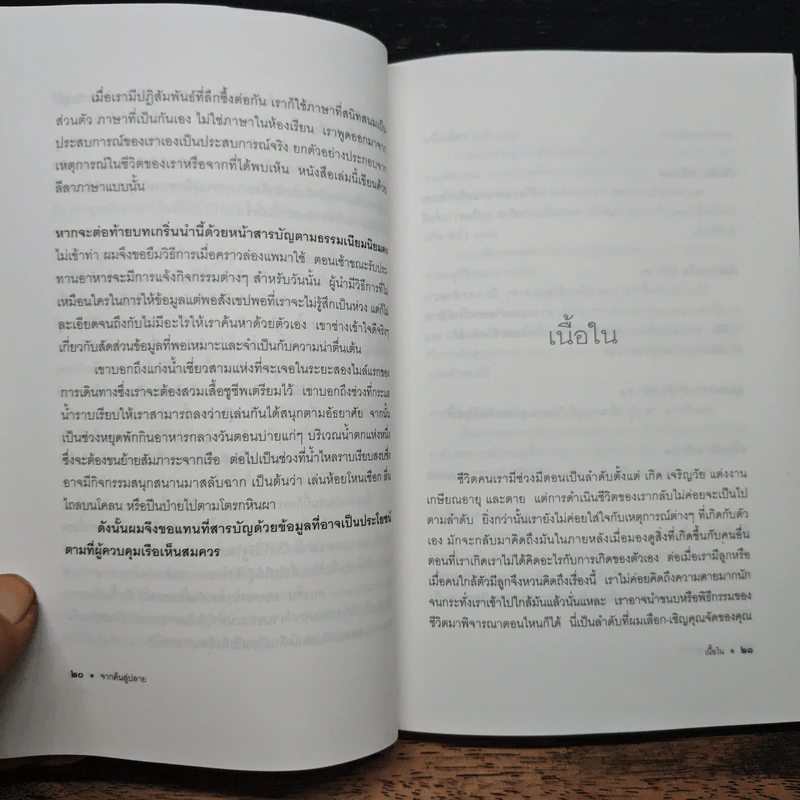 เมื่อเรามีปฏิสัมพันธ์ที่ลึกซึ้งต่อกัน เราก็ใช้ภาษาที่สนิทสนมเป็น
ส่วนตัว ภาษาที่เป็นกันเอง ไม่ใช่ภาษาในห้องเรียน เราพูดออกมาจาก
ประสบการณ์ของเราเองเป็นประสบการณ์จริง ยกตัวอย่างประกอบจาก
เหตุการณ์ในชีวิตของเราหรือจากที่ได้พบเห็น หนังสือเล่มนี้เขียนด้วย
ลีลาภาษาแบบนั้น
หากจะต่อท้ายบทเกริ่นนำนี้ด้วยหน้าสารบัญตามธรรมเนียมนิยมคง
ไม่เข้าท่า ผมจึงขอยืมวิธีการเมื่อคราวล่องแพมาใช้ ตอนเช้าขณะรับประ
ทานอาหารจะมีการแจ้งกิจกรรมต่างๆ สำหรับวันนั้น ผู้นำมีวิธีการที่ไม่
เหมือนใครในการให้ข้อมูลแต่พอสังเขปพอที่เราจะไม่รู้สึกเป็นห่วง แต่ก็ไม่
ละเอียดจนถึงกับไม่มีอะไรให้เราค้นหาด้วยตัวเอง เขาช่างเข้าใจดีจริงๆ
เกี่ยวกับสัดส่วนข้อมูลที่พอเหมาะและจำเป็นกับความน่าตื่นเต้น
เขาบอกถึงแก่งน้ำเชี่ยวสามแห่งที่จะเจอในระยะสองไมล์แรกของ
การเดินทางซึ่งเราจะต้องสวมเสื้อชูชีพเตรียมไว้ เขาบอกถึงช่วงที่กระแส
น้ำราบเรียบให้เราสามารถลงว่ายเล่นกันได้สนุกตามอัธยาศัย จากนั้น
เป็นช่วงหยุดพักกินอาหารกลางวันตอนบ่ายแก่ๆ บริเวณน้ำตกแห่งหนึ่ง
ซึ่งจะต้องขนย้ายสัมภาระจากเรือ ต่อไปเป็นช่วงที่น้ำไหลราบเรียบสงบซึ่ง
อาจมีกิจกรรมสนุกสนานมาสลับฉาก เป็นต้นว่า เล่นห้อยโหนเชือก ลื่น
ไถลบนโคลน หรือปีนป่ายไปตามโตรกหินผา
ดังนั้นผมจึงขอแทนที่สารบัญด้วยข้อมูลที่อาจเป็นประโยชน์
ตามที่ผู้ควบคุมเรือเห็นสมควร
๒๐ • จากต้นสู่ปลาย
เนื้อใน
ชีวิตคนเรามีช่วงมีตอนเป็นลำดับตั้งแต่ เกิด เจริญวัย แต่งงาน
เกษียณอายุ และตาย แต่การดำเนินชีวิตของเรากลับไม่ค่อยจะเป็นไป
ตามลำดับ ยิ่งกว่านั้นเรายังไม่ค่อยใส่ใจกับเหตุการณ์ต่างๆ ที่เกิดกับตัว
เอง มักจะกลับมาคิดถึงมันในภายหลังเมื่อมองดูสิ่งที่เกิดขึ้นกับคนอื่น
ตอนที่เราเกิดเราไม่ได้คิดอะไรกับการเกิดของตัวเอง ต่อเมื่อเรามีลูกหรือ
เมื่อคนใกล้ตัวมีลูกจึงหวนคิดถึงเรื่องนี้ เราไม่ค่อยคิดถึงความตายมากนัก
จนกระทั่งเราเข้าไปใกล้มันแล้วนั่นแหละ เราอาจนำขนบหรือพิธีกรรมของ
ชีวิตมาพิจารณาตอนไหนก็ได้ นี่เป็นลำดับที่ผมเลือก-เชิญคุณจัดของคุณ
เนื้อใน • ๒๑